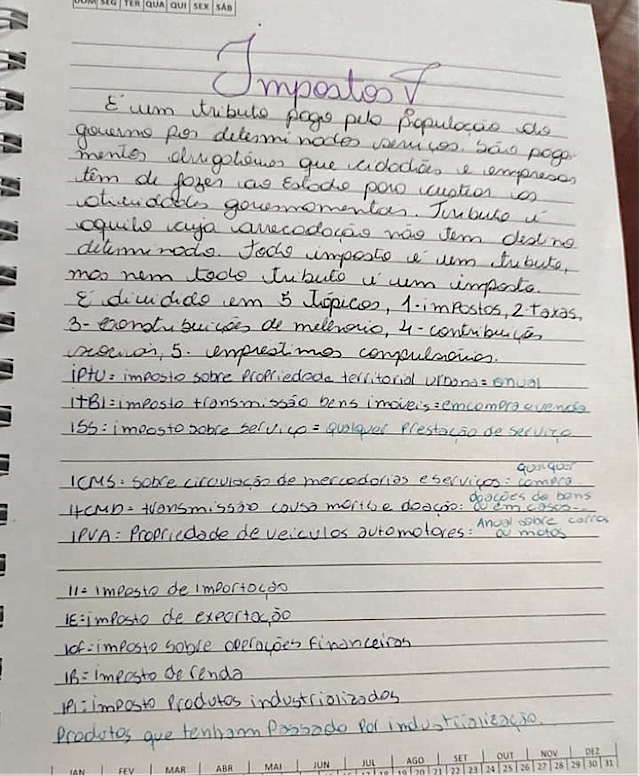 DOM SEG TER QUA QUI SEX SÁB
Impostos
É um tributo pago pela População ao
governo por determinados serviços. São paga-
mentos obrigatórios que cidadães e empresas
têm de fazer ao Estado para custear as
atividades governamentais. Tributo é
aquilo cuja arrecadação não tem destino
determinado. Todo imposto é um tributo,
mas nem todo tributo é um imposto.
É dividido em 5 tópicos, 1-impostos, 2-taxas,
3- contribuições de melhoria, 4-contribuição
sociais, 5- empréstimos compulsórios.
IPTU= imposto sobre Propriedade territorial urbana= anual
ITBI= imposto transmissão bens imóveis= em compra e venda
ISS= imposto sobre serviço= qualquer prestação de serviço
qualquer
ICMS= sobre circulação de mercadorias e serviços: compra
doações de bens
ITCMD= transmissão causa morths e doação: ou em casos...
Anual sobre carros
IPVA= Propriedade de veiculos automotores: ou motos
II= imposto de importação
IE= imposto de exportação
IOF= imposto sobre operações financeiras
IR= imposto de renda
IPI= imposto Produtos industrializados
Produtos que tenham Passado Por industrialização.
JAN FEV MAR ABR MAI JUN JUL AGO SET OUT NOV DEZ
19 20 21 22 23 24 25 26 27 28 29 30 31